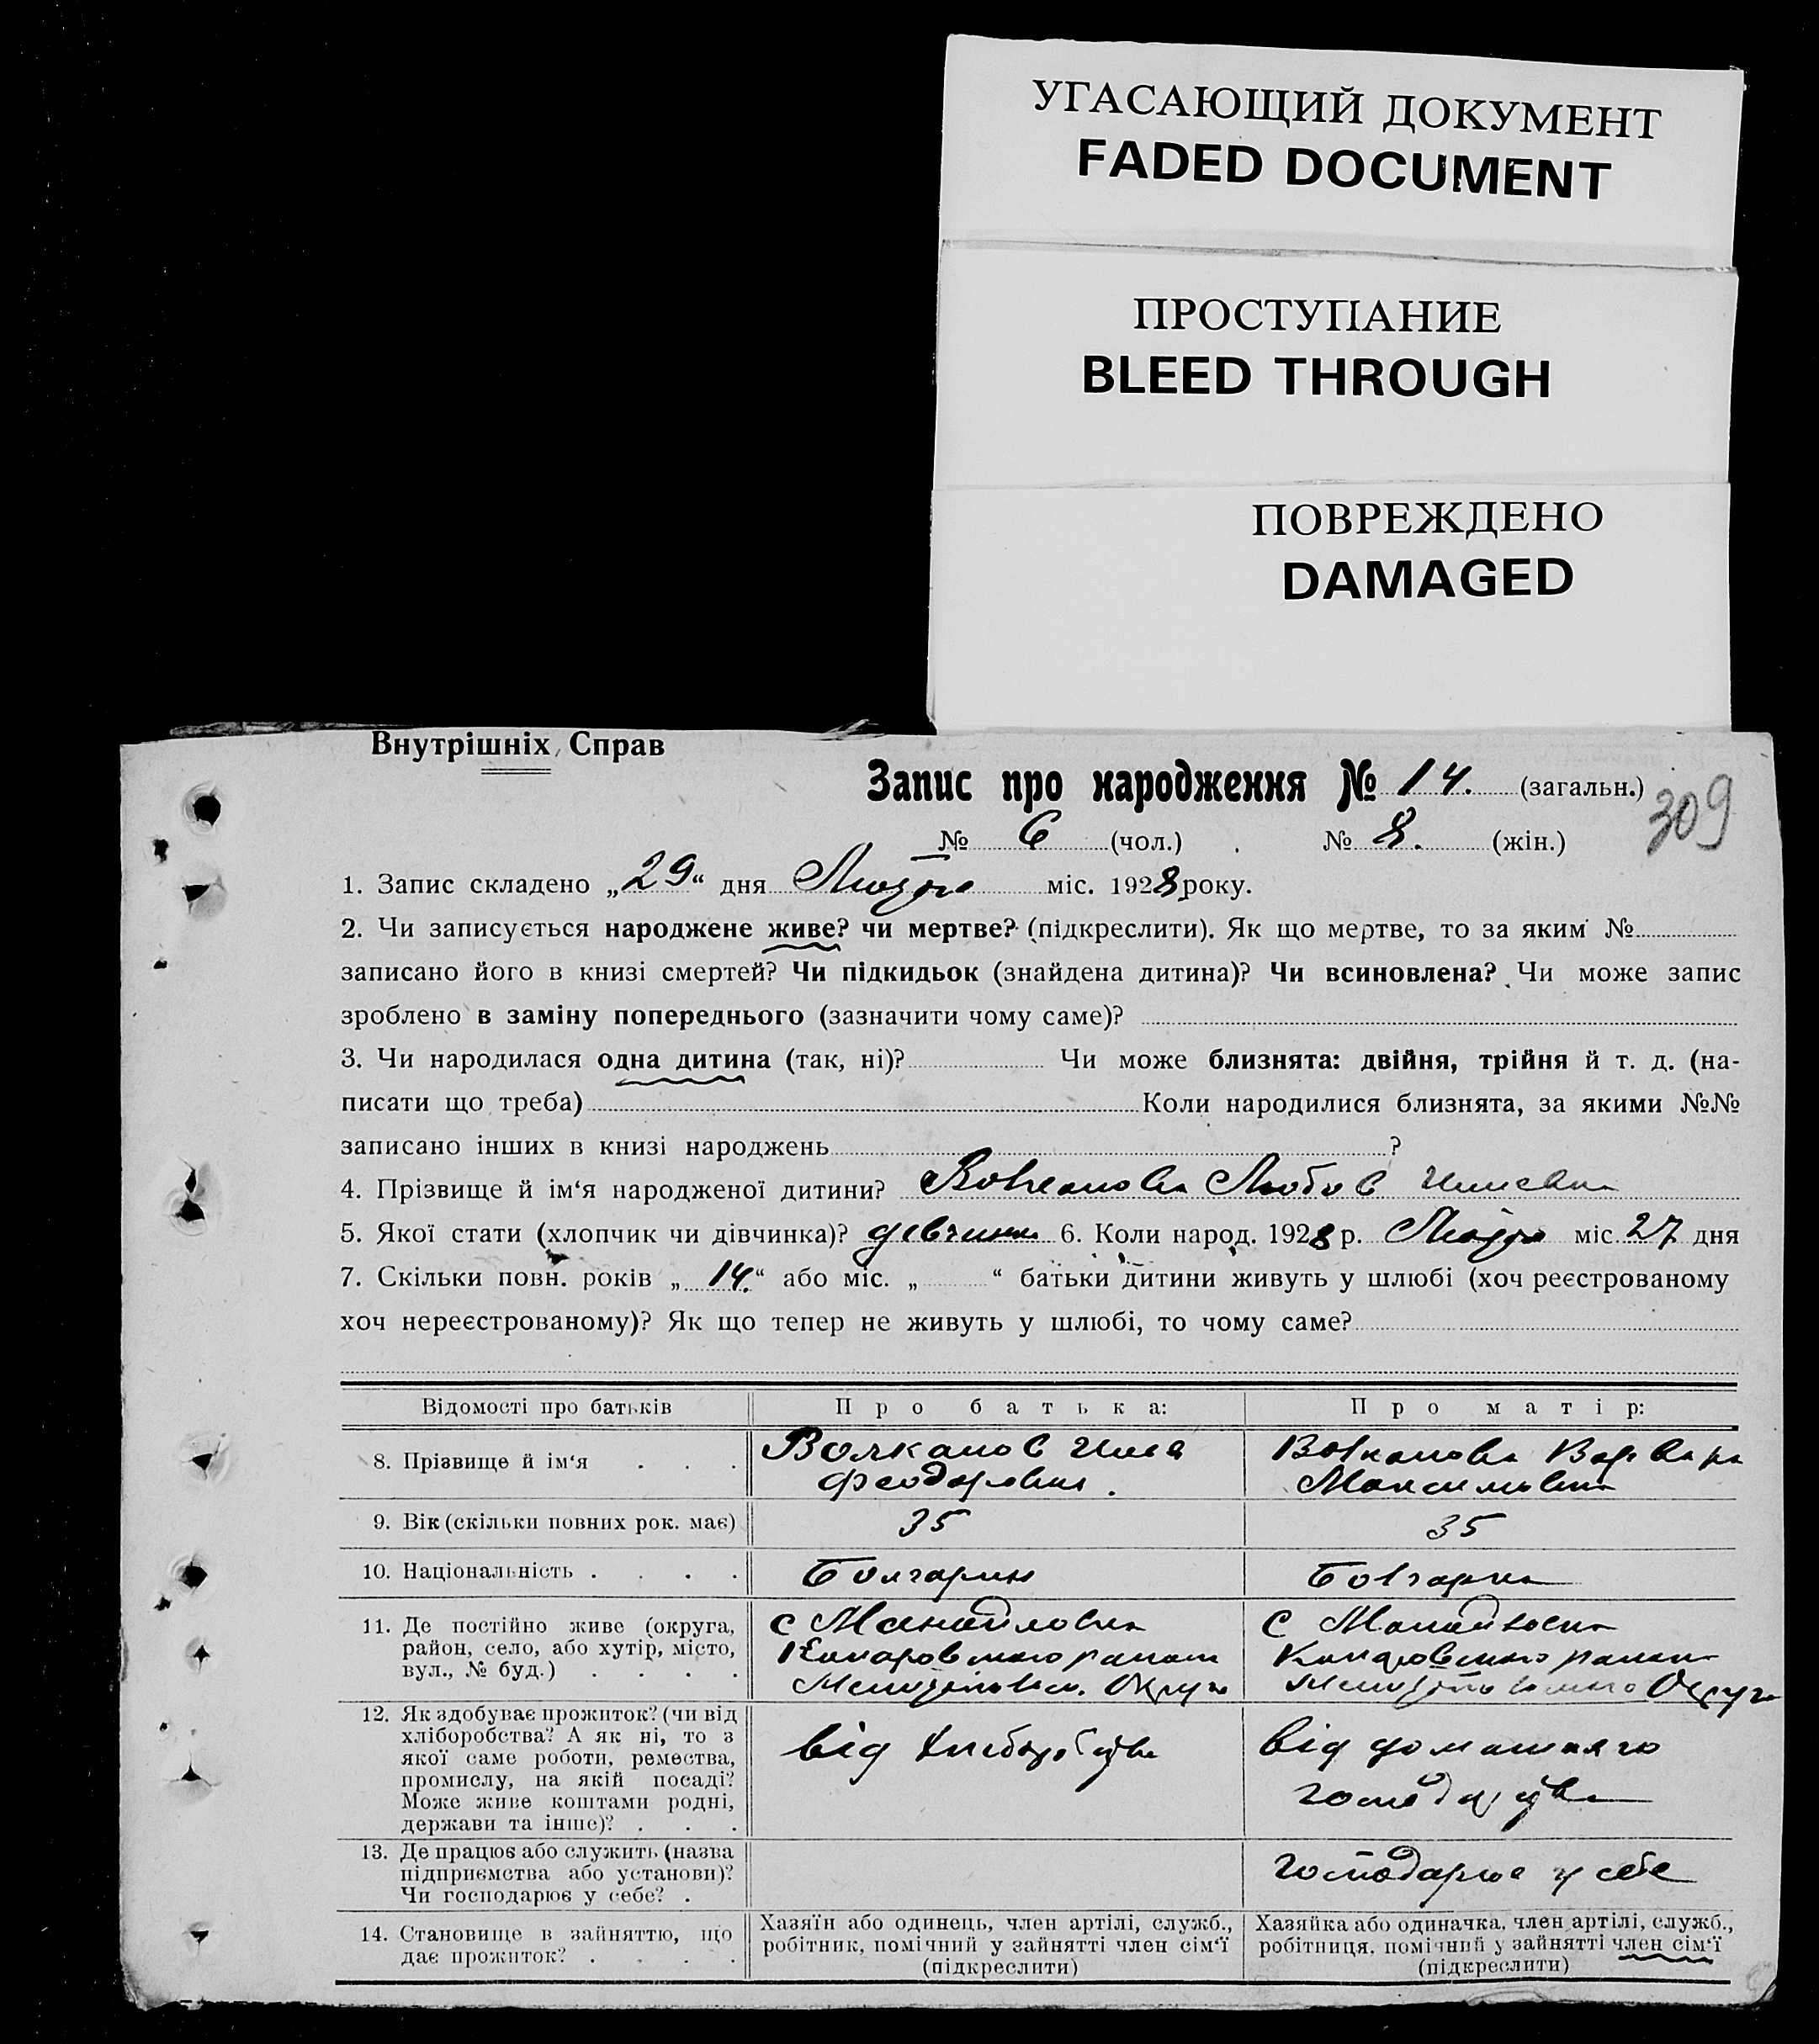 УГАСАЮЩИЙ ДОКУМЕНТ
FADED DOCUMENT
ПРОСТУПАНИЕ
BLEED THROUGH
ПОВРЕЖДЕНО
DAMAGED
Внутрішніх Справ
Запис про народження № 14. (загальн.)
309
№ 6 (чол.) № 8. (жін.)
1. Запис складено „29“ дня Лютого міс. 1928 року.
2. Чи записується народжене живе? чи мертве? (підкреслити). Як що мертве, то за яким №
записано його в книзі смертей? Чи підкидьок (знайдена дитина)? Чи всиновлена? Чи може запис
зроблено в заміну попереднього (зазначити чому саме)?
3. Чи народилася одна дитина (так, ні)? Чи може близнята: двійня, трійня й т. д. (на-
писати що треба) Коли народилися близнята, за якими №№
записано інших в книзі народжень ?
4. Прізвище й ім‘я народженої дитини? Вовканова Любов
5. Якої стати (хлопчик чи дівчинка)? дівчинка 6. Коли народ. 1928 р. Лютого міс. 27 дня
7. Скільки повн. років „ 14.“ або міс. „ “ батьки дитини живуть у шлюбі (хоч реєстрованому
хоч нереєстрованому)? Як що тепер не живуть у шлюбі, то чому саме?
Відомості про батьків Про батька: Про матір:
8. Прізвище й ім‘я . . .
Волканов Илля
Феодорович.
Вовканова Варвара
Максимовна
9. Вік (скільки повних рок. має) 35 35
10. Національність . . . . Болгарин Бовгарка
11. Де постійно живе (округа,
район, село, або хутір, місто,
вул., № буд.) . . . .
с Манойловка
району
Округи
с Манойловка
району
Округи
12. Як здобуває прожиток? (чи від
хліборобства? А як ні, то з
якої саме роботи, ремества,
промислу, на якій посаді?
Може живе коштами родні,
держави та інше)? . . .
від хліборобства
від домашняго
господарства
13. Де працює або служить (назва
підприємства або установи)?
Чи господарює у себе? .
господарює у себе
14. Становище в зайняттю, що
дає прожиток? . . . .
Хазяїн або одинець, член артілі, служб.,
робітник, помічний у зайнятті член сім‘ї
(підкреслити)
Хазяйка або одиначка, член артілі, служб.,
робітниця, помічний у зайнятті член сім‘ї
(підкреслити)